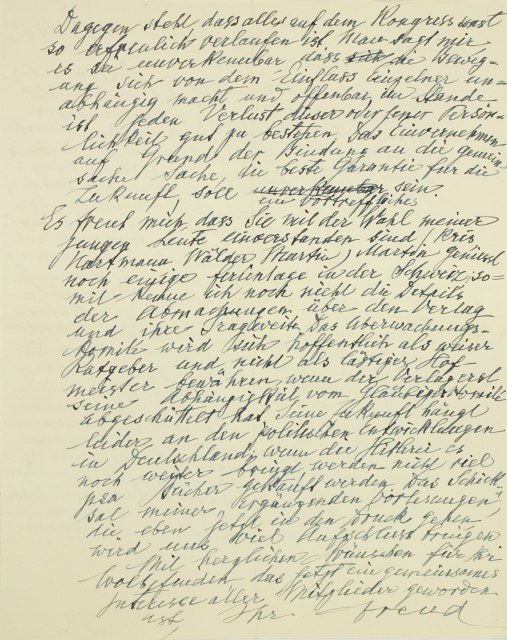 Dagegen steht, dass alles auf dem Kongress sonst
so erfreulich verlaufen ist. Man sagt mir,
es sei unverkennbar, dass sich die Beweg-
ung sich von dem Einfluss einzelner un-
abhängig macht und offenbar im Stande
ist jeden Verlust dieser oder jener Persön-
lichkeit gut zu bestehen. Das Einvernehmen
auf Grund der Bindung an die gemein
same Sache, die beste Garantie für die
Zukunft, soll unverkennbar sein.
ein vortreffliches
Es freut mich, dass Sie mit der Wahl meiner
jungen Leute einverstanden sind, Kris
Hartmann, Wälder, Martin) Martin genießt
noch einige Ferientage in der Schweiz, so=
mit kenne ich noch nicht die Details
der Abmachungen über den Verlag
und ihre Tragweite. Das Überwachungs-
komite wird sich hoffentlich als weiser
Ratgeber und nicht als lästiger Hof
meister bewähren, wenn der Verlag erst
seine Abhängigkeit vom Gläubigerkomite
abgeschüttelt hat. Seine Zukunft hängt
leider an den politischen Entwicklungen
in Deutschland; wenn die Hitlerei es
noch weiter bringt werden nicht viel
psa Bücher gekauft werden. Das Schick
sal meiner „ergänzenden Vorlesungen"
die eben jetzt in den Druck gehen,
wird uns viel Aufschluss bringen
Mit herzlichen Wünschen für Ihr
Wolbefinden das jetzt ein gemeinsames
Interesse aller Mitglieder geworden
ist, Ihr Freud